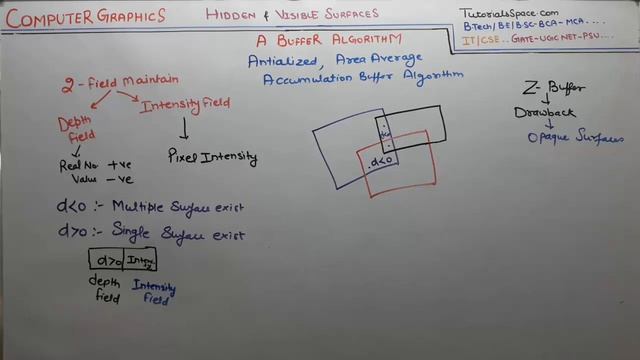 COMPUTER GRAPHICS
HIDDEN & VISIBLE SURFACES
TUTORIALSSPACE.COM
B.TECH/BE/B.SC-BCA-MCA....
IT/CSE.. GATE-UGC NET-PSU....
A BUFFER ALGORITHM
Antialized, Area Average
Accumulation Buffer Algorithm
2-Field Maintain
Depth
field
Intensity Field
Real No +ve
Value -ve
Pixel Intensity
d<0 :- Multiple Surface exist
d>0 :- Single Surface exist
d>0
depth
field
Intensity
field
d<0
Z-Buffer
Drawback
Opaque Surfaces